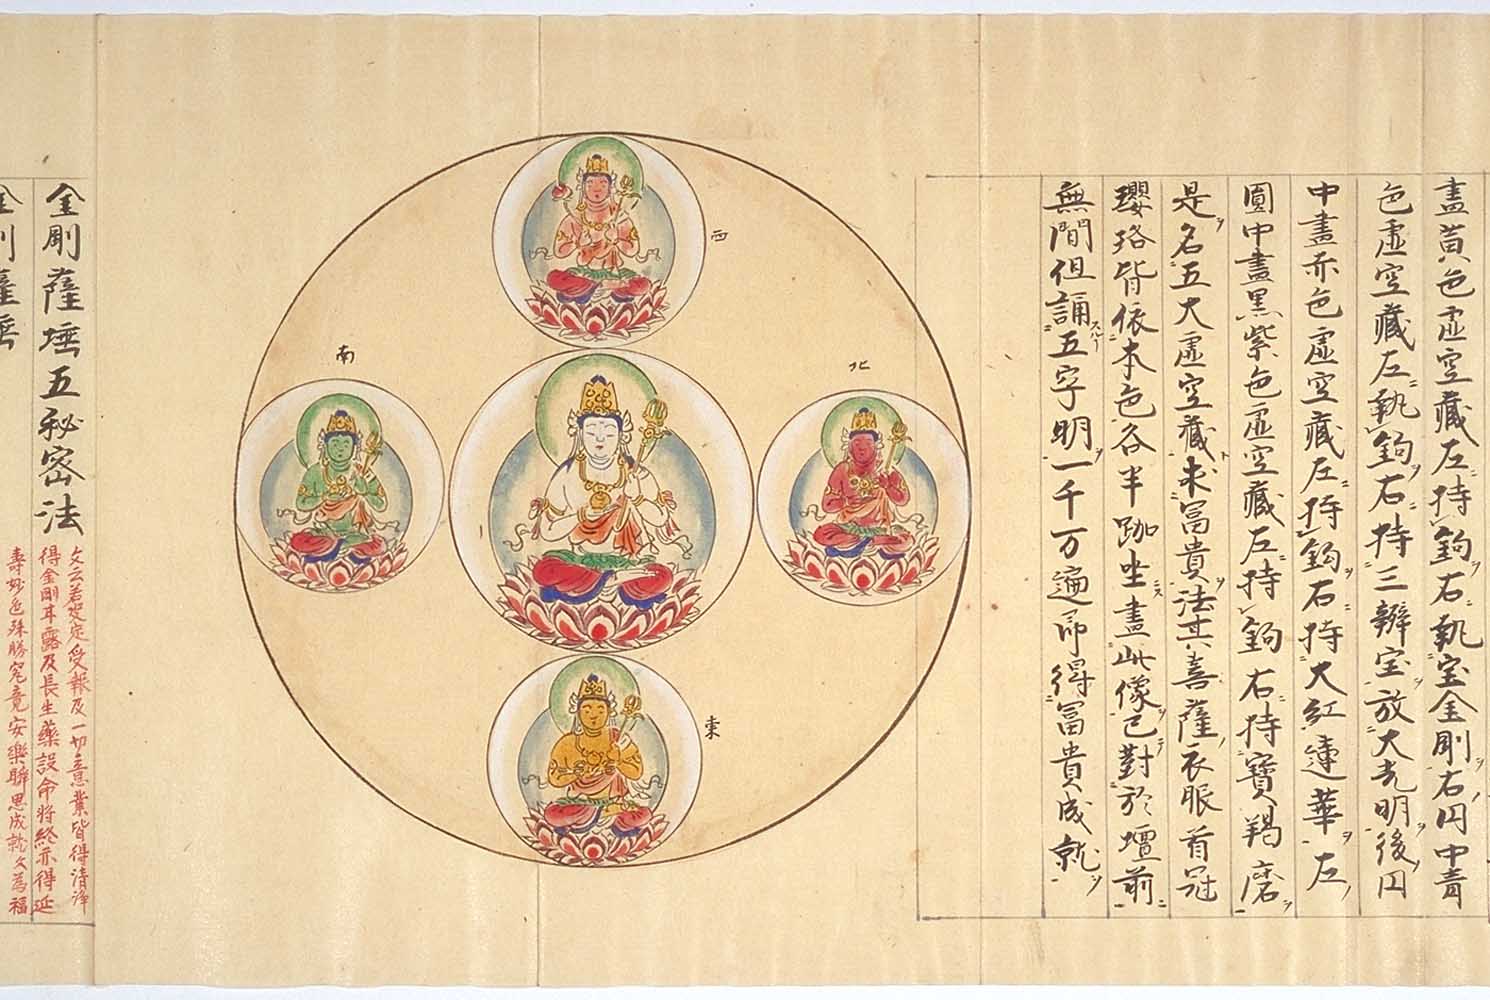 畫黄色虚空藏左持鉤右執宝金剛右円中青
色虚空藏左執鉤右持三辦宝放大光明後円
中畫赤色虚空藏左持鉤右持大紅蓮華左
圓中畫黒紫色虚空藏左持鉤右持寶羯磨
是名五大虚空藏求冨貴法其善薩衣服首冠
瓔珞皆依本色各半跏坐畫此像已對於壇前
無間但誦五字明一千万遍即得冨貴成就
西
北
南
東
金剛薩埵五秘密法
文云若决定受報及一切意業皆得清浄
得金剛甘露及長生藥設命将終亦得延
壽妙色殊勝究竟安樂
金剛薩埵